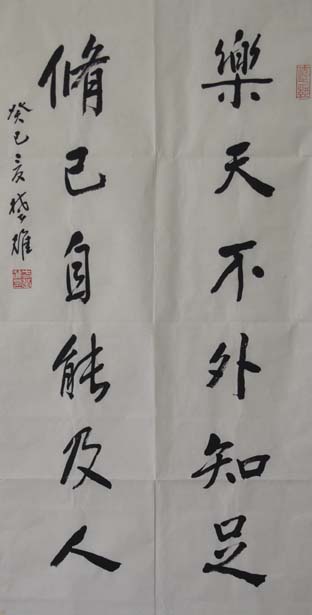 樂天不外知足
脩己自能及人
癸巳夏